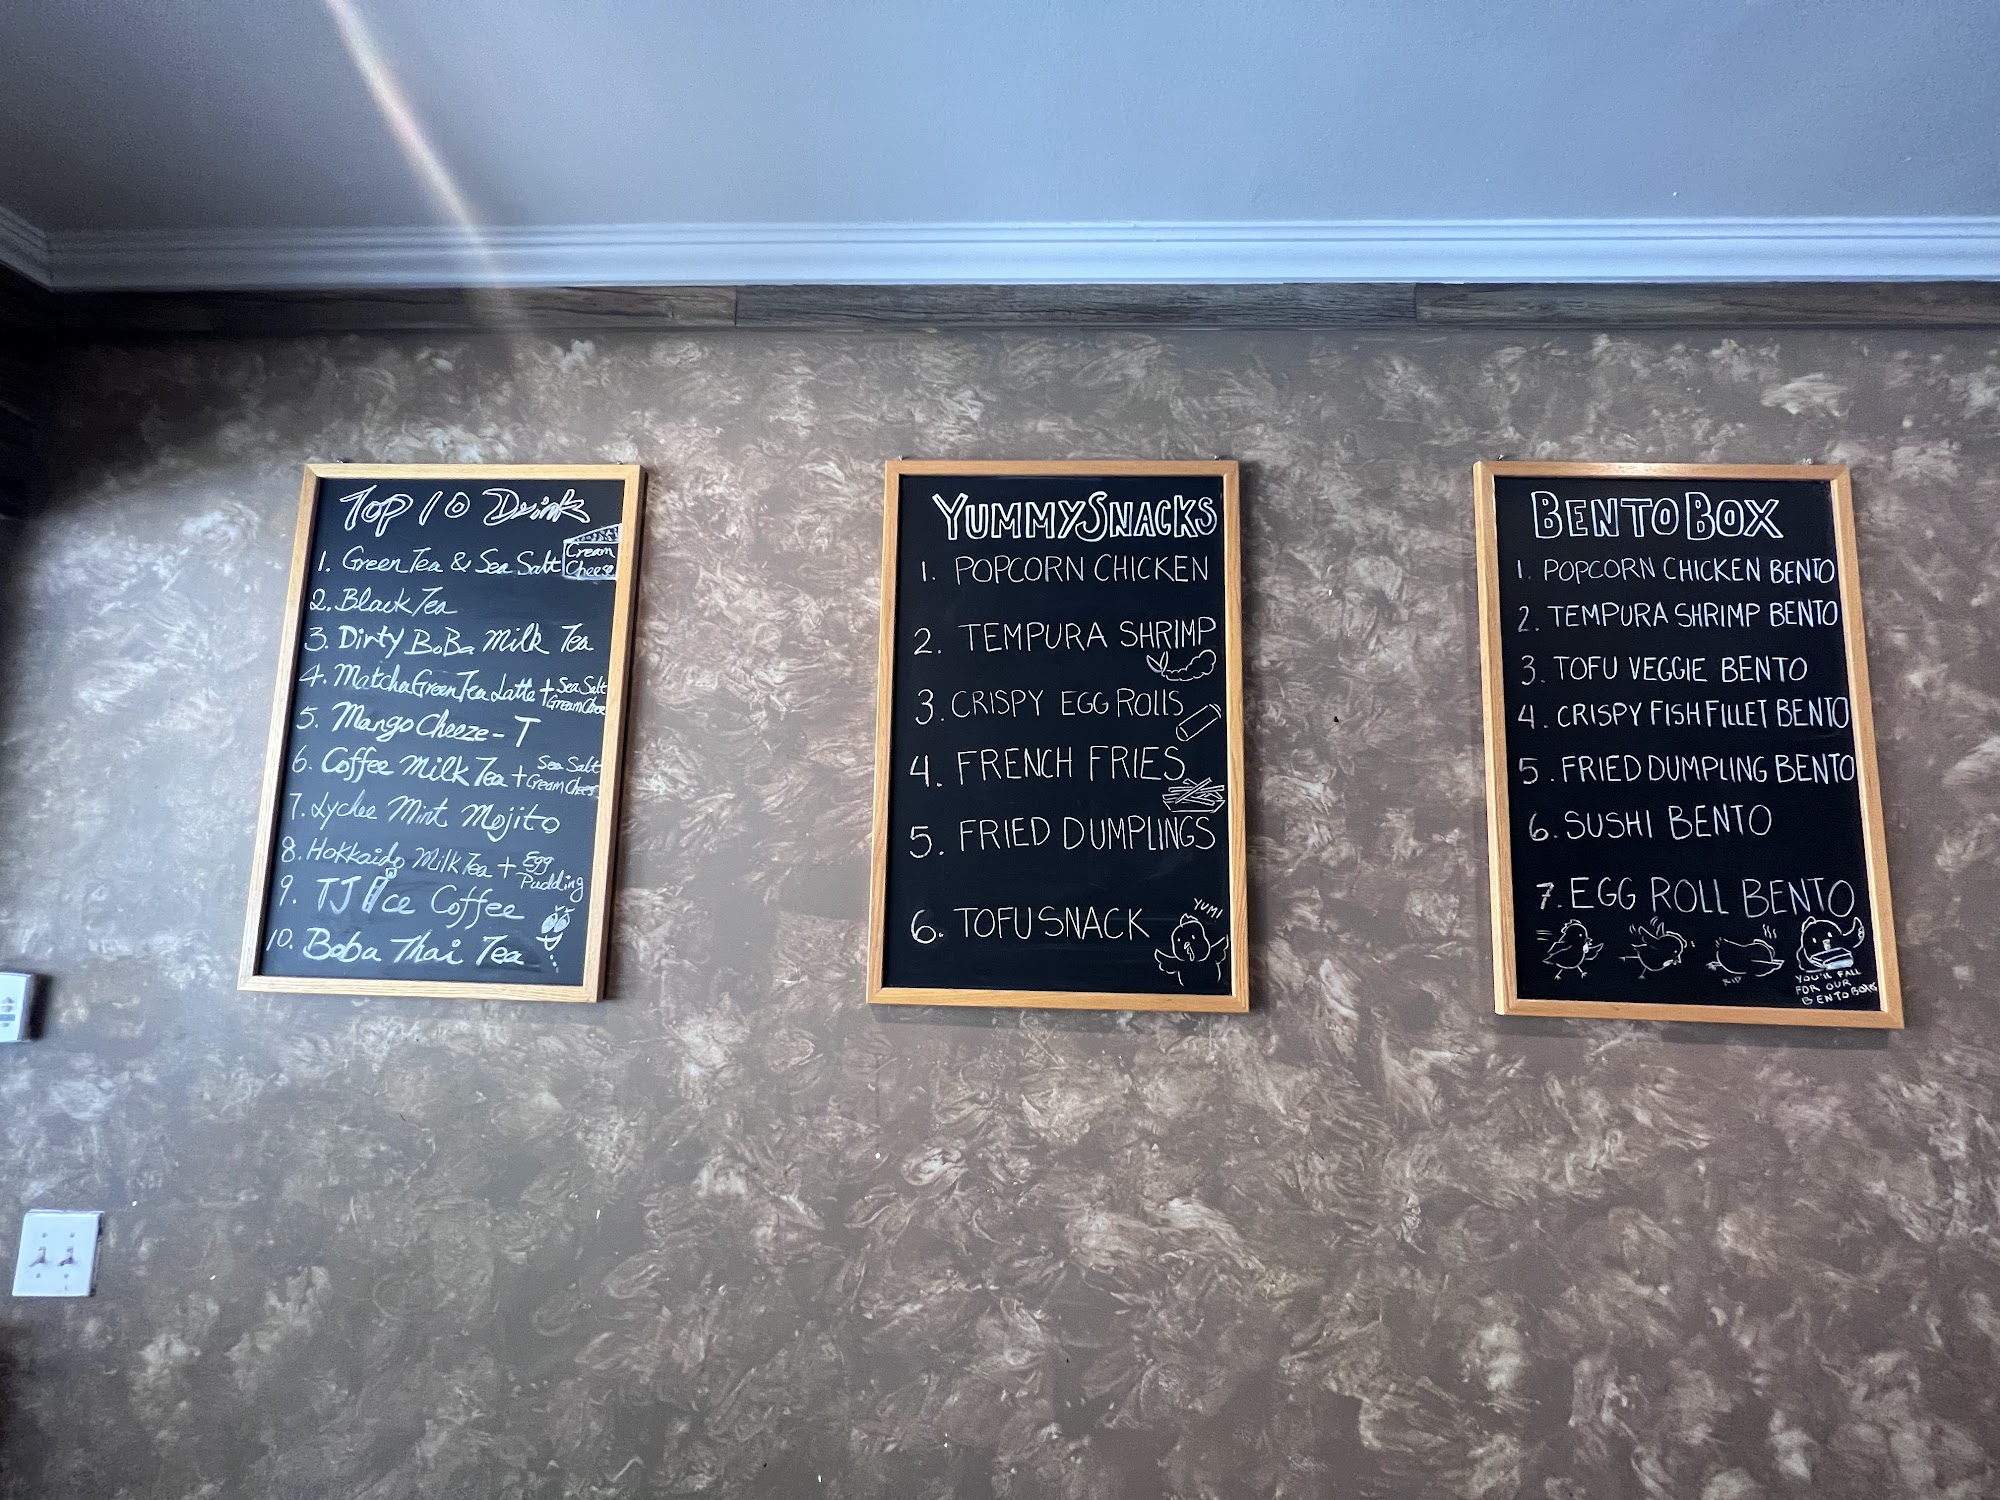 Top 10 Drink
1. Green Tea & Sea Salt Cream Cheese
2. Black Tea
3. Dirty BoBa Milk Tea
4. Matcha Green Tea Latte + Sea Salt Cream Chee
5. Mango Cheeze-T
6. Coffee Milk Tea + Sea Salt Cream Chees
7. Lychee Mint Mojito
8. Hokkaido Milk Tea + Egg Pudding
9. TJ Ice Coffee
10. Boba Thai Tea
YUMMY SNACKS
1. POPCORN CHICKEN
2. TEMPURA SHRIMP
3. CRISPY EGG ROLLS
4. FRENCH FRIES
5. FRIED DUMPLINGS
6. TOFU SNACK
YUMI
BENTO BOX
1. POPCORN CHICKEN BENTO
2. TEMPURA SHRIMP BENTO
3. TOFU VEGGIE BENTO
4. CRISPY FISH FILLET BENTO
5. FRIED DUMPLING BENTO
6. SUSHI BENTO
7. EGG ROLL BENTO
RIP
YOU'LL FALL
FOR OUR
BENTO BOXES